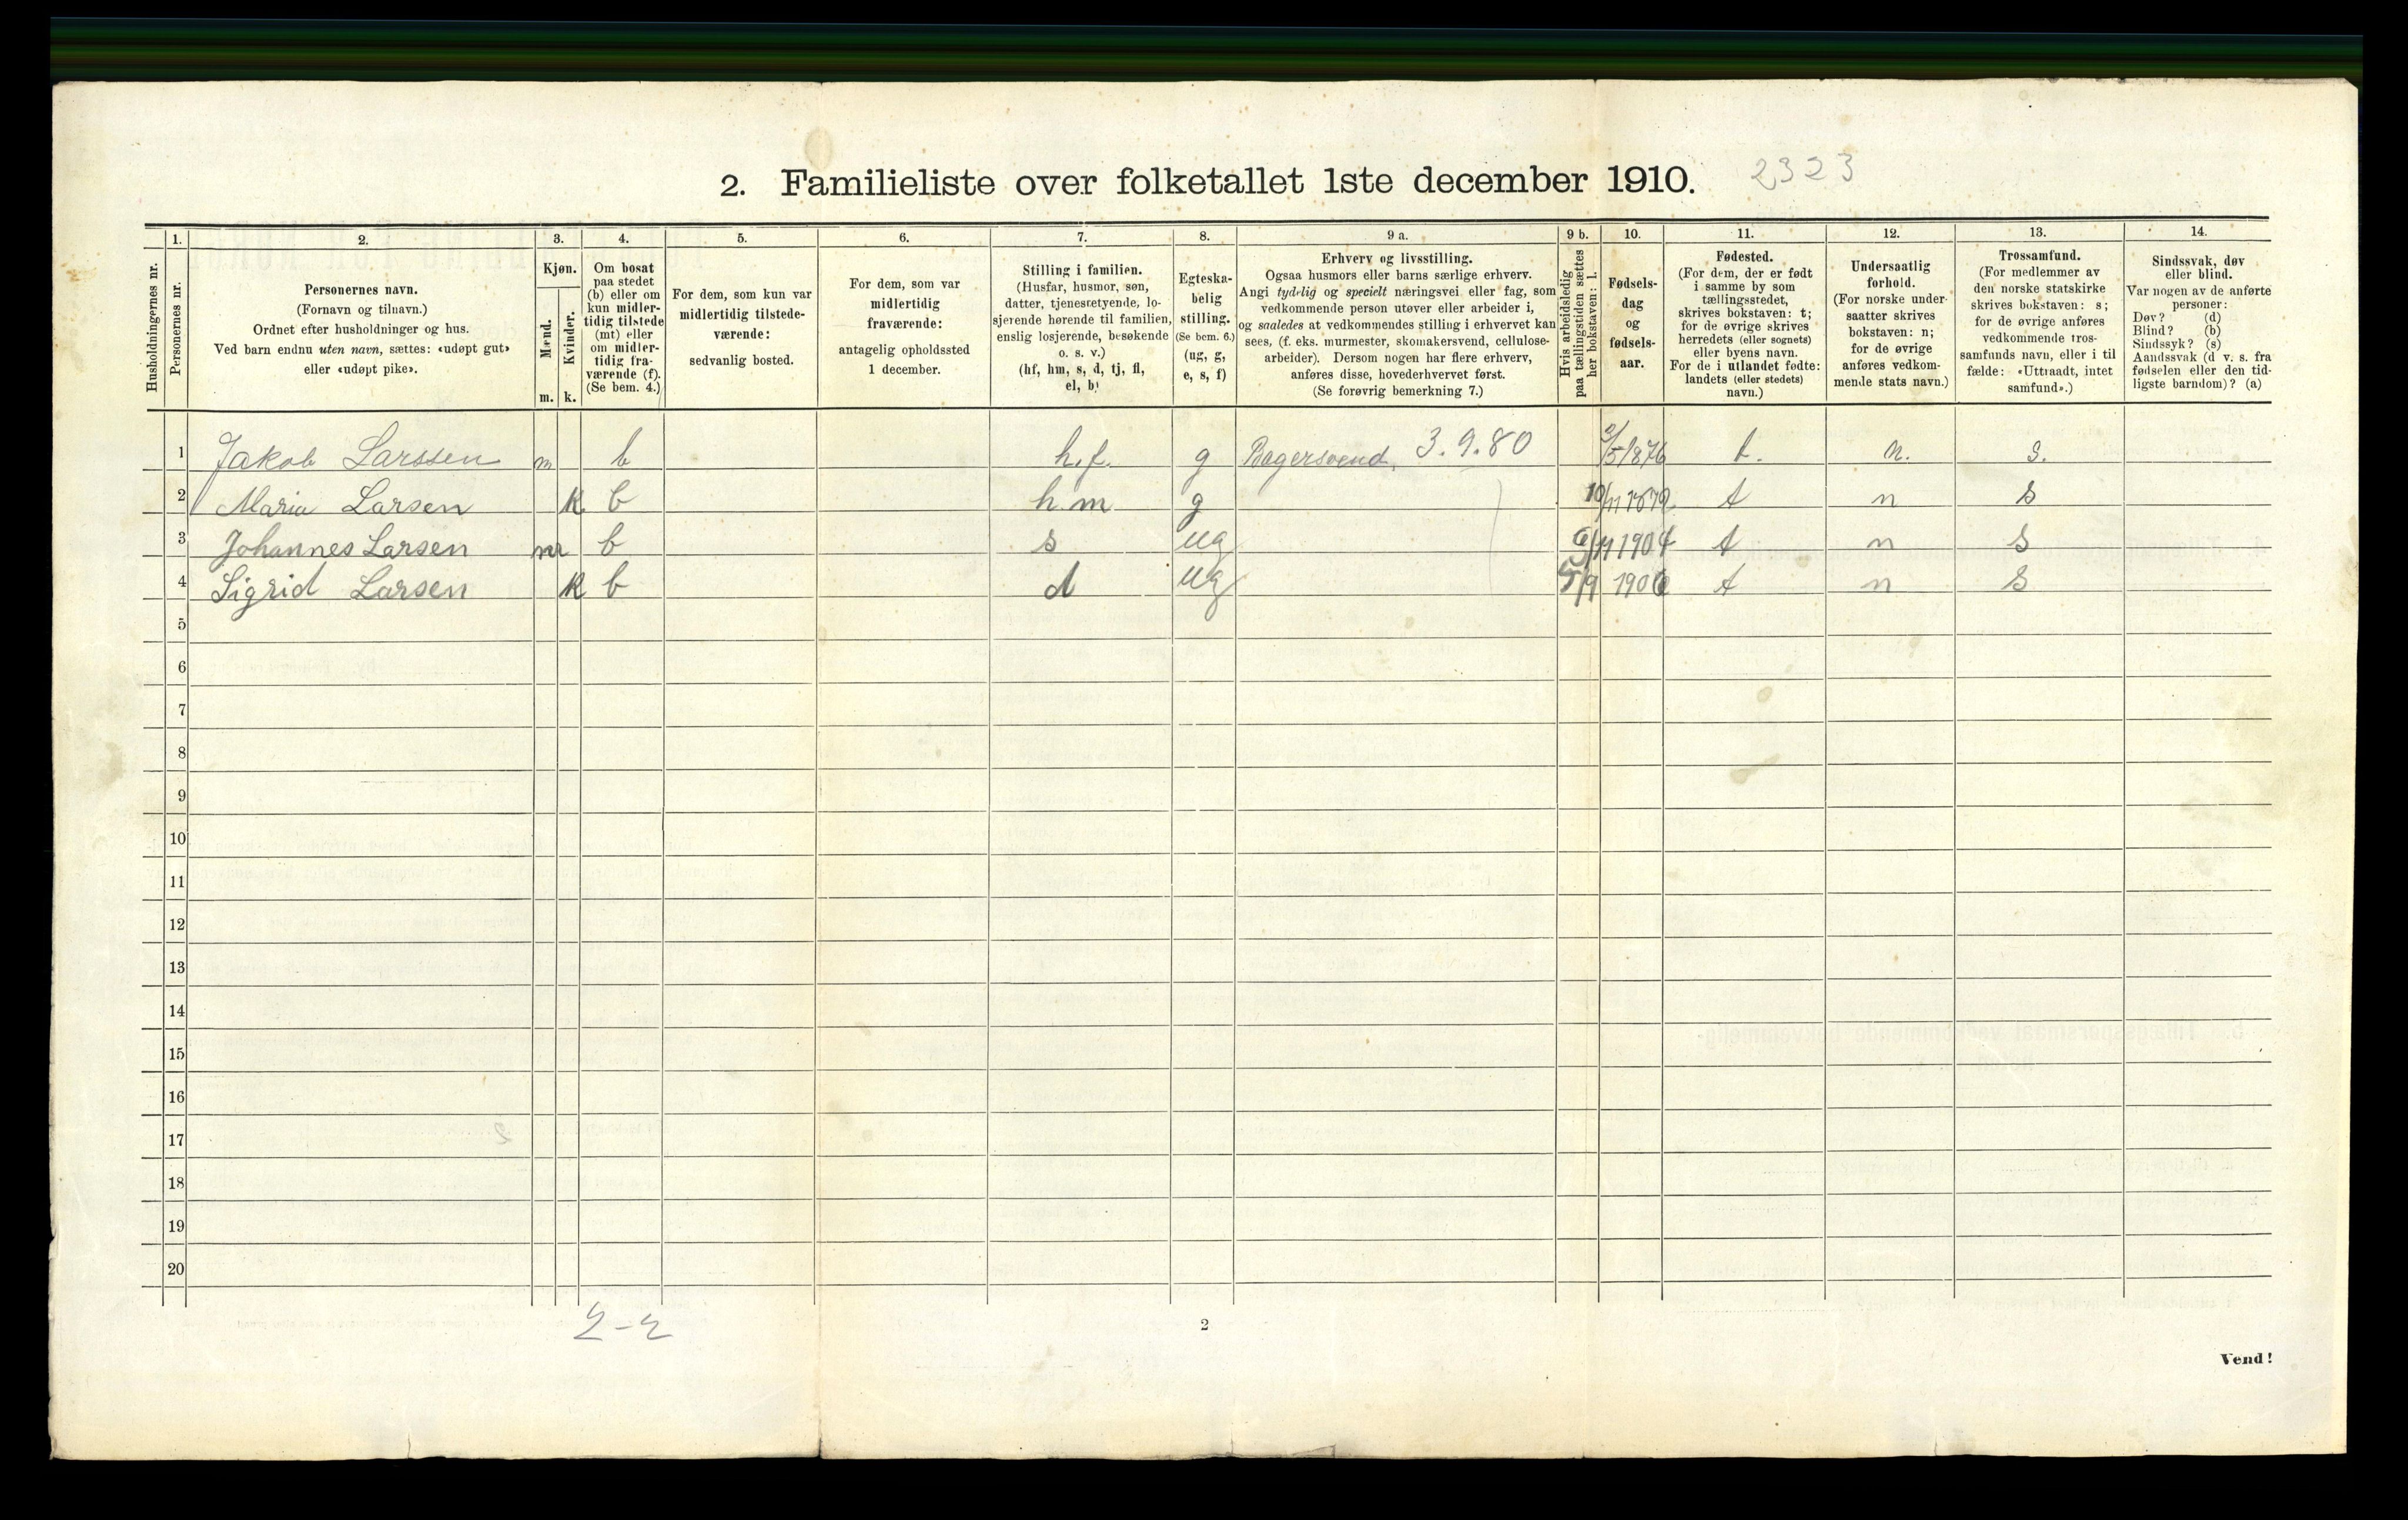 2. Familieliste over folketallet 1ste december 1910. 2323
Husholdningernes nr.
1.
Personernes nr.
2.
Personernes navn.
(Fornavn og tilnavn.)
Ordnet efter husholdninger og hus.
Ved barn endnu uten navn, sættes: «udøpt gut»
eller «udøpt pike».
3.
Kjøn.
Mænd.
Kvinder.
m. k.
4.
Om bosat
paa stedet
(b) eller om
kun midler-
tidig tilstede
(mt) eller
om midler-
tidig fra-
værende (f).
(Se bem. 4.)
5.
For dem, som kun var
midlertidig tilstede-
værende:
sedvanlig bosted.
6.
For dem, som var
midlertidig
fraværende:
antagelig opholdssted
1 december.
7.
Stilling i familien.
(Husfar, husmor, søn,
datter, tjenestetyende, lo-
sjerende hørende til familien,
enslig losjerende, besøkende
o. s. v.)
(hf, hm, s, d, tj, fl,
el, b)
8.
Egteska-
belig
stilling.
(Se bem. 6.)
(ug, g,
e, s, f)
9 a.
Erhverv og livsstilling.
Ogsaa husmors eller barns særlige erhverv.
Angi tydelig og specielt næringsvei eller fag, som
vedkommende person utøver eller arbeider i,
og saaledes at vedkommendes stilling i erhvervet kan
sees, (f. eks. murmester, skomakersvend, cellulose-
arbeider). Dersom nogen har flere erhverv,
anføres disse, hovederhvervet først.
(Se forøvrig bemerkning 7.)
9 b.
Hvis arbeidsledig
paa tællingstiden sættes
her bokstaven: l.
10.
Fødsels-
dag
og
fødsels-
aar.
11.
Fødested.
(For dem, der er født
i samme by som
tællingsstedet,
skrives bokstaven: t;
for de øvrige skrives
herredets (eller sognets)
eller byens navn.
For de i utlandet fødte:
landets (eller stedets)
navn.)
12.
Undersaatlig
forhold.
(For norske under-
saatter skrives
bokstaven: n;
for de øvrige
anføres vedkom-
mende stats navn.)
13.
Trossamfund.
(For medlemmer av
den norske statskirke
skrives bokstaven: s;
for de øvrige anføres
vedkommende tros-
samfunds navn, eller i til
fælde: «Uttraadt, intet
samfund».)
14.
Sindssvak, døv
eller blind.
Var nogen av de anførte
personer:
Døv? (d)
Blind? (b)
Sindssyk? (s)
Aandssvak (d v. s. fra
fødselen eller den tid-
ligste barndom)? (a)
1 Jakob Larssen m b h.f. g Bagersvend, 3.9.80 /5 1876 t. n. s.
2 Maria Larsen k b h m g 10/11 1879 t n s
3 Johannes Larsen m b s ug /11 1904 t n s
4 Sigrid Larsen k b d ug 5/9 1906 t n s
5
6
7
8
9
10
11
12
13
14
15
16
17
18
19
20
2-2
2
Vend!